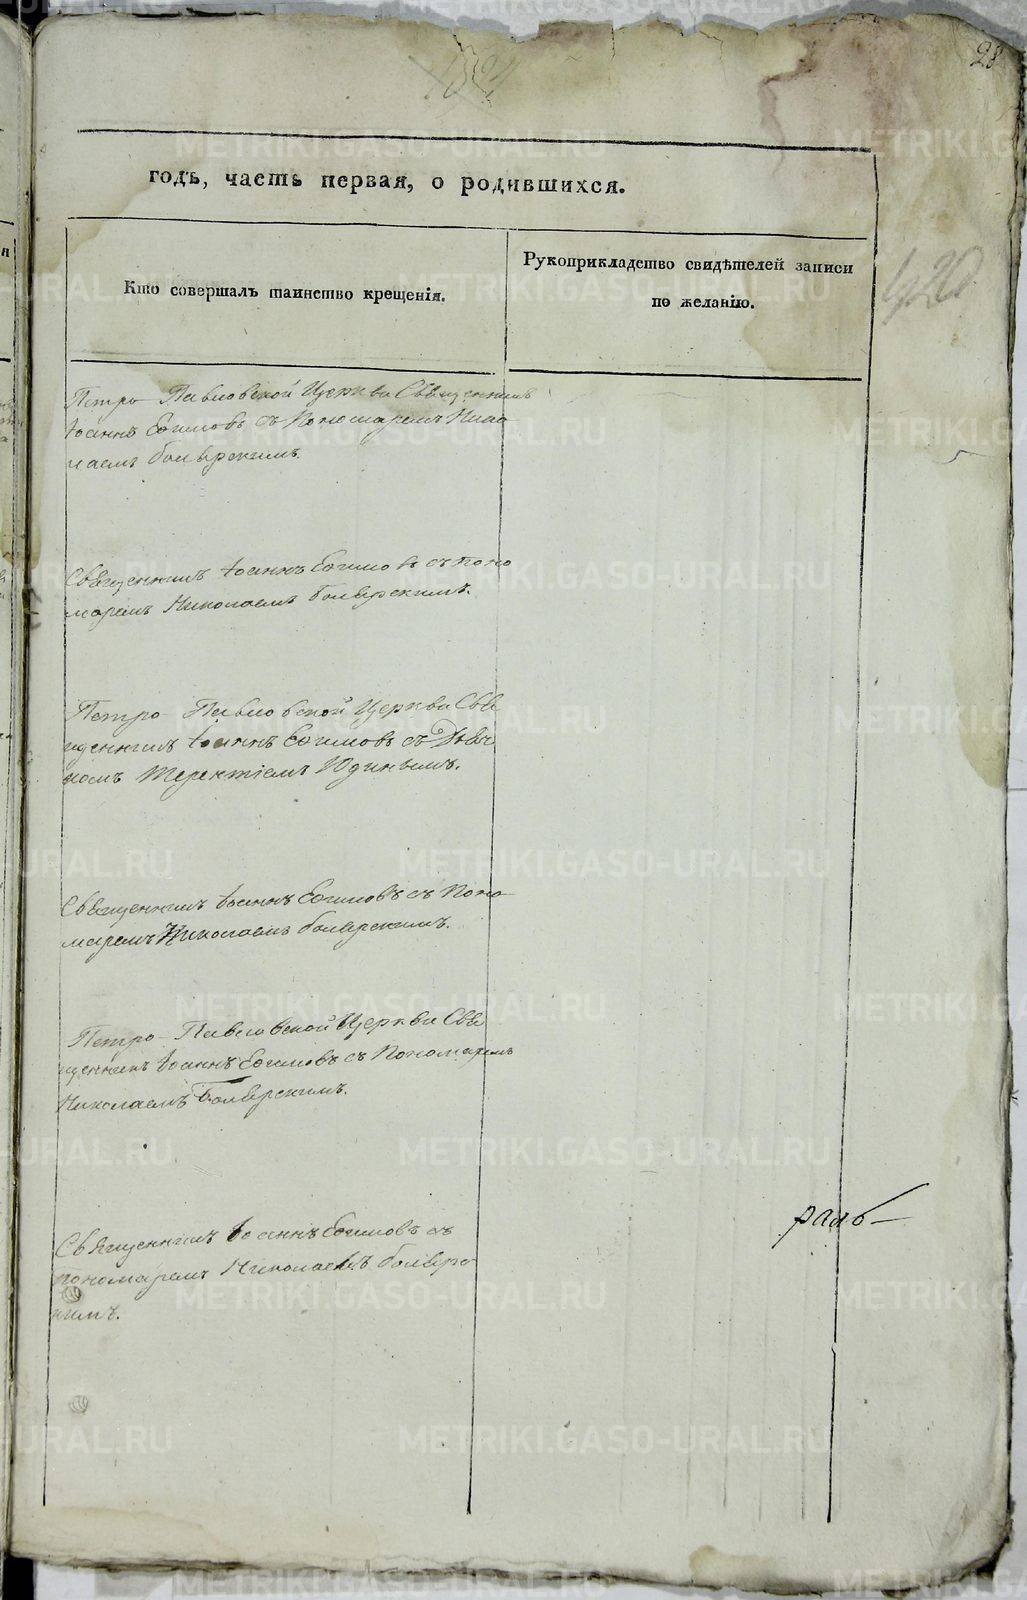 28
годъ, часть первая, о родившихся.
Кто совершалъ таинство крещенія.
Рукоприкладство свидѣтелей записи
по желанію.
420
Петро-Павловской Церкви Священникъ
Іоаннъ Ефимовъ съ Пономаремъ Нико
лаемъ Боярскимъ.
Священникъ Іоаннъ Ефимовъ съ поно
маремъ Николаемъ Боярскимъ.
Петро-Павловской Церкви Свя
щенникъ Іоаннъ Ефимовъ съ Дьяч
комъ Терентіемъ Юдинымъ.
Священникъ Іоаннъ Ефимовъ съ Поно
маремъ Николаемъ Боярскимъ.
Петро-Павловской Церкви Свя
щенникъ Іоаннъ Ефимовъ съ Пономаремъ
Николаемъ Боярскимъ.
Священникъ Іоаннъ Ефимовъ съ
пономаремъ Николаемъ Боярс
кимъ.
METRIKI.GASO-URAL.RU